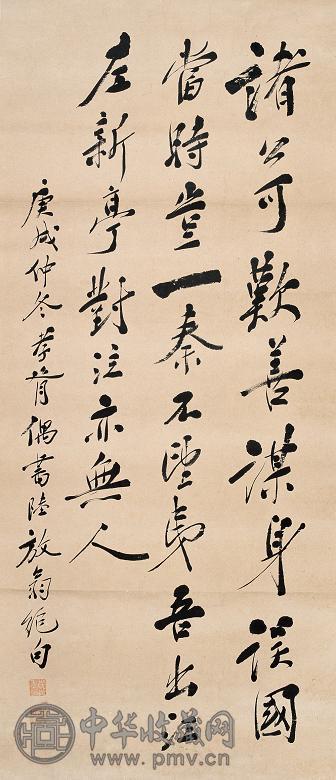 諸公可歎善謀身誤國
當時豈一秦不望夷吾出江
左新亭對泣亦無人
庚戌仲冬孝胥偶書陸放翁絕句
中华收藏网
www.pmv.cn